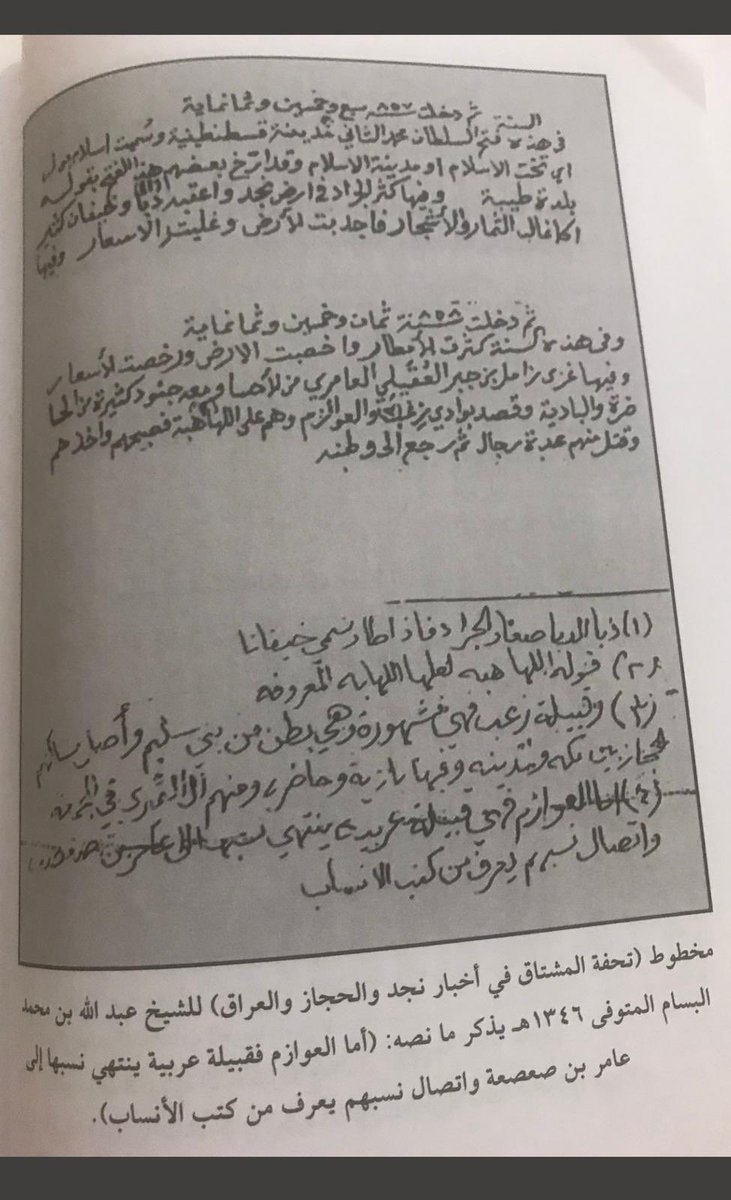 ثم دخلت سنة ٨٥٧ سبع وخمسين وثمانماية
في هذه السنة فتح السلطان محمد الثاني مدينة قسطنطينية وسميت اسلامبول
اي تخت الاسلام او مدينة الاسلام وقد ارخ بعضهم هذا الفتح بقوله
بلدة طيبة وفيها كثر الجراد في ارض نجد واعقبه دبا وخيفان كثير
اكل غالب الثمار والأشجار فاجدبت الأرض وغليت الاسعار وفيها
ثم دخلت سنة ٨٥٨ ثمان وخمسين وثمانماية
وفي هذه السنة كثرت الأمطار واخصبت الارض ورخصت الأسعار
وفيها غزى زامل بن جبر العقيلي العامري من الأحسا ومعه جنود كثيرة من الحا
ضرة والبادية وقصد بوادي من زعب والعوازم وهم على اللهابة فصبحهم واخذهم
وقتل منهم عدة رجال ثم رجع الى وطنه
(١) دبا الدبا صغار الجراد فاذا طار سمي خيفانا
(٢) قوله اللهابه لعلها اللهابه المعروفه
(٣) وقبيلة زعب فهي مشهورة وهي بطن من بني سليم وأصل مساكنهم
الحجاز بين مكه والمدينه وفيها بادية وحاضره ومنهم في
(٤) اما العوازم فهي قبيلة عربيه ينتهي نسبها الى عامر بن صعصعه
واتصال نسبهم يعرف من كتب الانساب
مخطوط (تحفة المشتاق في أخبار نجد والحجاز والعراق) للشيخ عبد الله بن محمد
البسام المتوفى ١٣٤٦هـ يذكر ما نصه: (أما العوازم فقبيلة عربية ينتهي نسبها إلى
عامر بن صعصعة واتصال نسبهم يعرف من كتب الأنساب).